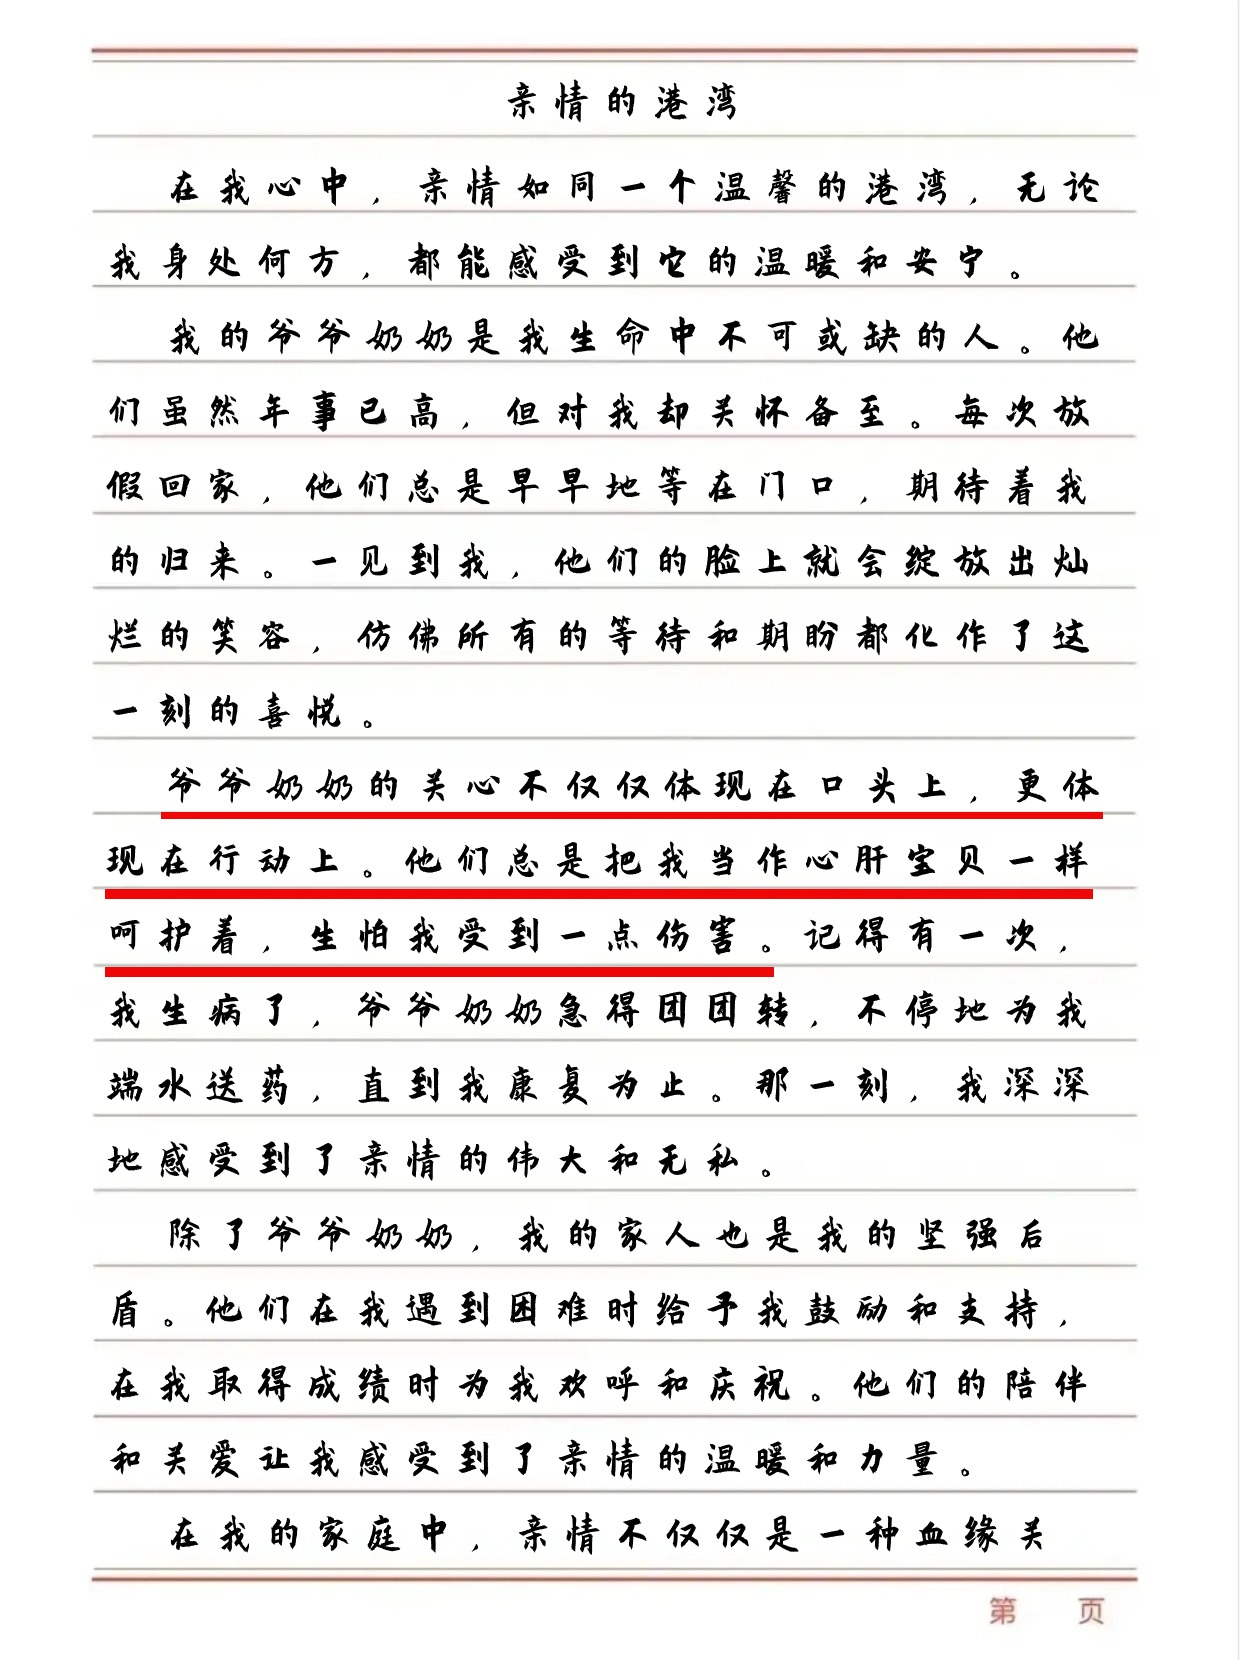 亲情的港湾
在我心中，亲情如同一个温馨的港湾，无论
我身处何方，都能感受到它的温暖和安宁。
我的爷爷奶奶是我生命中不可或缺的人。他
们虽然年事已高，但对我却关怀备至。每次放
假回家，他们总是早早地等在门口，期待着我
的归来。一见到我，他们的脸上就会绽放出灿
烂的笑容，仿佛所有的等待和期盼都化作了这
一刻的喜悦。
爷爷奶奶的关心不仅仅体现在口头上，更体
现在行动上。他们总是把我当作心肝宝贝一样
呵护着，生怕我受到一点伤害。记得有一次，
我生病了，爷爷奶奶急得团团转，不停地为我
端水送药，直到我康复为止。那一刻，我深深
地感受到了亲情的伟大和无私。
除了爷爷奶奶，我的家人也是我的坚强后
盾。他们在我遇到困难时给予我鼓励和支持，
在我取得成绩时为我欢呼和庆祝。他们的陪伴
和关爱让我感受到了亲情的温暖和力量。
在我的家庭中，亲情不仅仅是一种血缘关
第 页